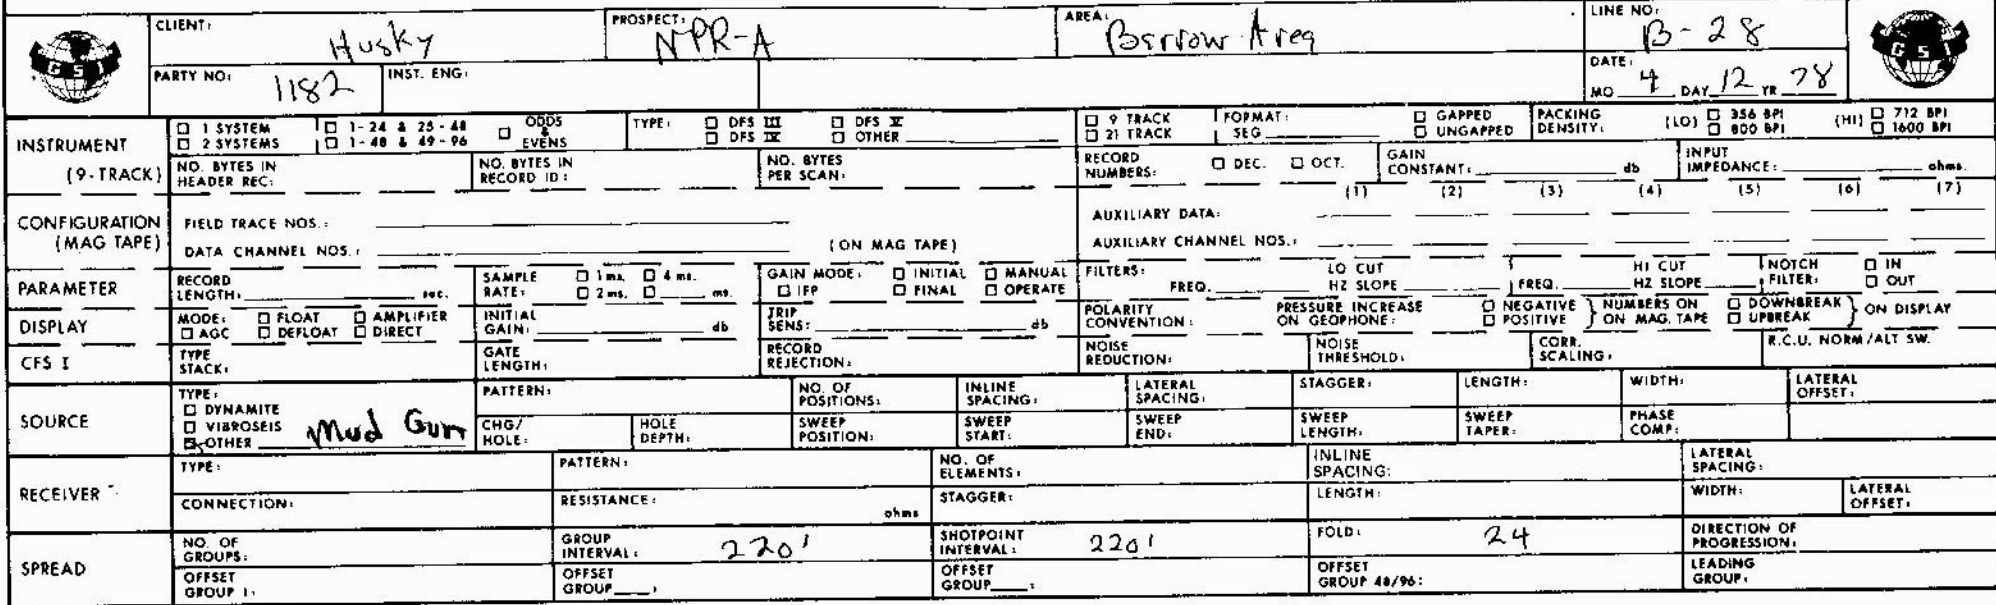 CLIENT: Husky PROSPECT: NPR-A AREA: Barrow Area LINE NO: B-28
GSI GSI
PARTY NO: 1182 INST. ENG: DATE: MO 4 DAY 12 YR 78
INSTRUMENT (9-TRACK) □ 1 SYSTEM □ 1-24 & 25-48 □ ODDS & EVENS TYPE: □ DFS III □ DFS V □ 9 TRACK FORMAT: □ GAPPED PACKING DENSITY: (LO) □ 356 BPI (HI) □ 712 BPI
□ 2 SYSTEMS □ 1-48 & 49-96 □ DFS IV □ OTHER □ 21 TRACK SEG □ UNGAPPED □ 800 BPI □ 1600 BPI
NO. BYTES IN HEADER REC: NO. BYTES IN RECORD ID: NO. BYTES PER SCAN: RECORD NUMBERS: □ DEC. □ OCT. GAIN CONSTANT: db INPUT IMPEDANCE: ohms.
CONFIGURATION (MAG TAPE) (1) (2) (3) (4) (5) (6) (7)
FIELD TRACE NOS.: AUXILIARY DATA:
DATA CHANNEL NOS.: (ON MAG TAPE) AUXILIARY CHANNEL NOS.:
PARAMETER RECORD LENGTH: sec. SAMPLE RATE: □ 1 ms. □ 4 ms. □ 2 ms. □ ms. GAIN MODE: □ INITIAL □ MANUAL □ IFP □ FINAL □ OPERATE FILTERS: FREQ. LO CUT HZ SLOPE FREQ. HI CUT HZ SLOPE NOTCH FILTER: □ IN □ OUT
DISPLAY MODE: □ FLOAT □ AMPLIFIER □ AGC □ DEFLOAT □ DIRECT INITIAL GAIN: db TRIP SENS: db POLARITY CONVENTION: PRESSURE INCREASE ON GEOPHONE: □ NEGATIVE □ POSITIVE } NUMBERS ON ON MAG. TAPE □ DOWNBREAK □ UPBREAK } ON DISPLAY
CFS I TYPE STACK: GATE LENGTH: RECORD REJECTION: NOISE REDUCTION: NOISE THRESHOLD: CORR. SCALING: R.C.U. NORM/ALT SW.
SOURCE TYPE: □ DYNAMITE □ VIBROSEIS ☒ OTHER Mud Gun PATTERN: NO. OF POSITIONS: INLINE SPACING: LATERAL SPACING: STAGGER: LENGTH: WIDTH: LATERAL OFFSET:
CHG/HOLE: HOLE DEPTH: SWEEP POSITION: SWEEP START: SWEEP END: SWEEP LENGTH: SWEEP TAPER: PHASE COMP:
RECEIVER TYPE: PATTERN: NO. OF ELEMENTS: INLINE SPACING: LATERAL SPACING:
CONNECTION: RESISTANCE: ohms STAGGER: LENGTH: WIDTH: LATERAL OFFSET:
SPREAD NO. OF GROUPS: GROUP INTERVAL: 220' SHOTPOINT INTERVAL: 220' FOLD: 24 DIRECTION OF PROGRESSION:
OFFSET GROUP 1: OFFSET GROUP ___: OFFSET GROUP ___: OFFSET GROUP 48/96: LEADING GROUP: